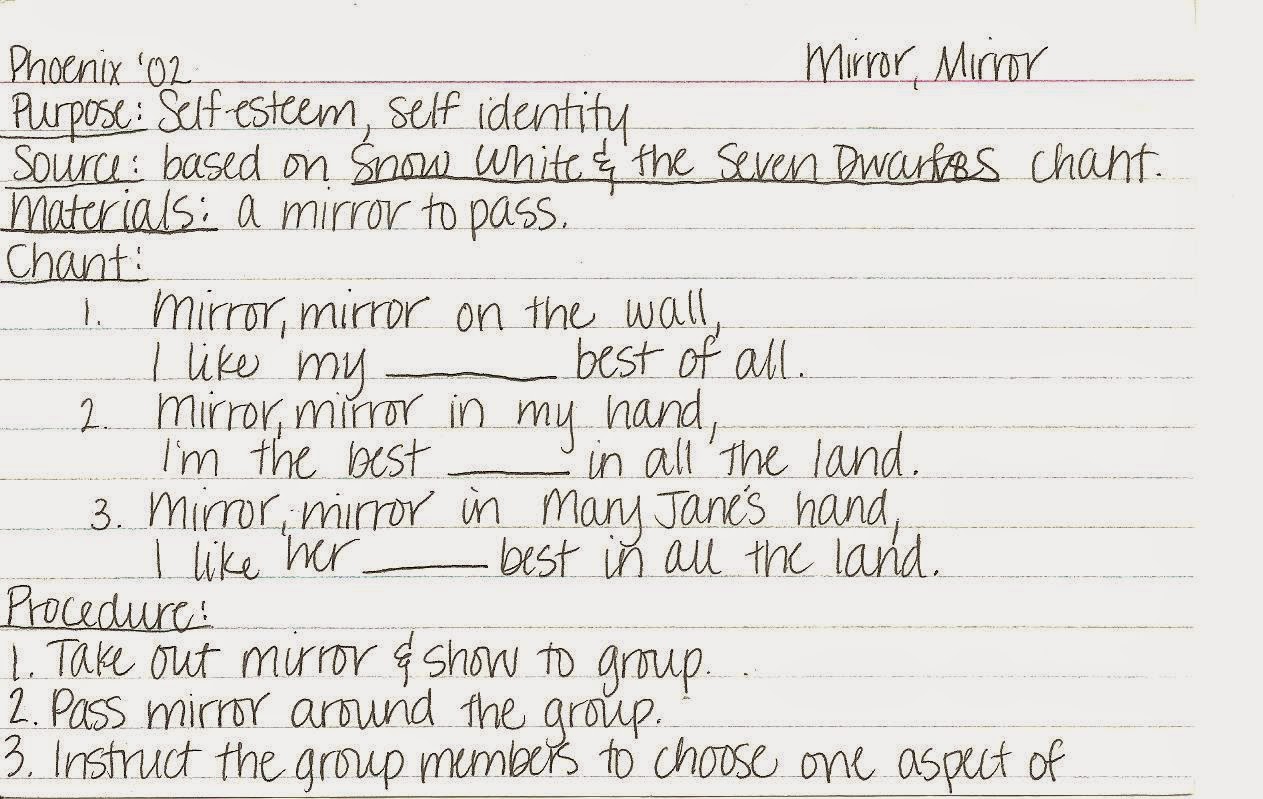 Phoenix '02 Mirror, Mirror
Purpose: Self-esteem, self identity
Source: based on Snow White & the Seven Dwarfs chant.
Materials: a mirror to pass.
Chant:
1. Mirror, mirror on the wall,
I like my ______ best of all.
2. Mirror, mirror in my hand,
I'm the best ______ in all the land.
3. Mirror, mirror in Mary Jane's hand,
I like her ______ best in all the land.
Procedure:
1. Take out mirror & show to group.
2. Pass mirror around the group.
3. Instruct the group members to choose one aspect of